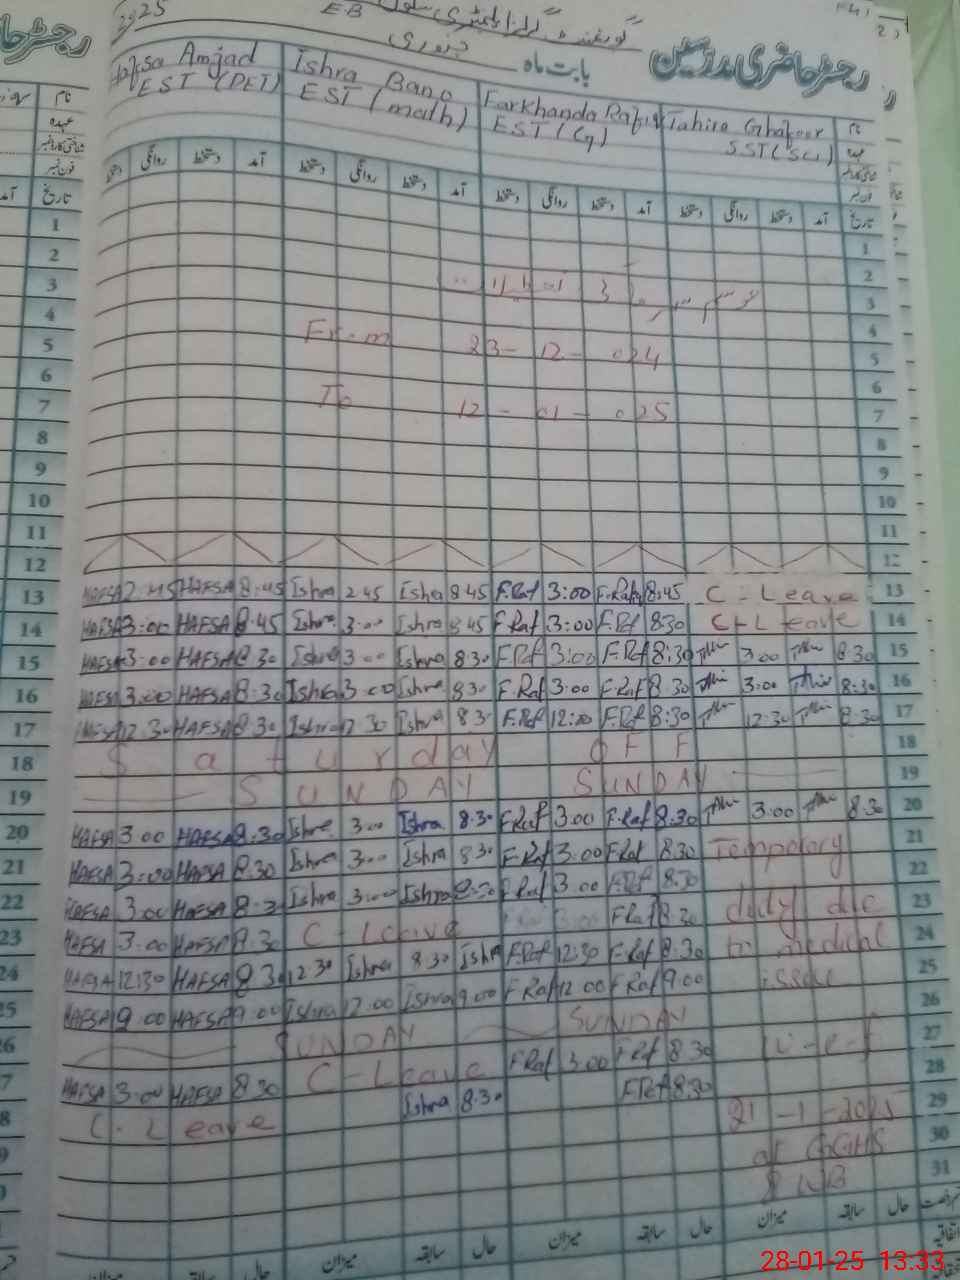 2025
رجسٹر حاضری مدرسین
بابت ماہ جنوری
Hafsa Amjad Ishra Bano Farkhanda Rafiq Tahira Ghafoor
EST (PET) EST (math) EST (G) SST (Sci)
نام
عہدہ
فون نمبر
دستخط روانگی دستخط آمد دستخط روانگی دستخط آمد دستخط روانگی دستخط آمد دستخط روانگی دستخط آمد تاریخ
1
2
3
4
From 23 - 12 - 024 5
6
To 12 - 01 - 025 7
8
9
10
11
12
HAFSA 2:45 HAFSA 8:45 Ishra 2:45 Ishra 8:45 F.Raf 3:00 F.Rafiq 8:45 C - Leave 13
HAFSA 3:00 HAFSA 8:45 Ishra 3:00 Ishra 8:45 F.Raf 3:00 F.Raf 8:30 C - Leave 14
HAFSA 3:00 HAFSA 8:30 Ishra 3:00 Ishra 8:30 F.Raf 3:00 F.Raf 8:30 3:00 8:30 15
HAFSA 3:00 HAFSA 8:30 Ishra 3:00 Ishra 8:30 F.Raf 3:00 F.Raf 8:30 3:00 8:30 16
HAFSA 12:30 HAFSA 8:30 Ishra 12:30 Ishra 8:30 F.Raf 12:00 F.Raf 8:30 12:30 8:30 17
Saturday OFF 18
SUNDAY SUNDAY 19
HAFSA 3:00 HAFSA 8:30 Ishra 3:00 Ishra 8:30 F.Raf 3:00 F.Raf 8:30 3:00 8:30 20
HAFSA 3:00 HAFSA 8:30 Ishra 3:00 Ishra 8:30 F.Raf 3:00 F.Raf 8:30 Tempolory 21
HAFSA 3:00 HAFSA 8:30 Ishra 3:00 Ishra 8:30 F.Raf 3:00 F.Raf 8:30 22
HAFSA 3:00 HAFSA 8:30 C - Leave F.Raf 8:30 duty due 23
HAFSA 12:30 HAFSA 8:30 12:30 Ishra 8:30 Ishra F.Raf 12:30 F.Raf 8:30 to medical 24
HAFSA 9:00 HAFSA 9:00 Ishra 12:00 Ishra 9:00 F.Raf 12:00 F.Raf 9:00 issue 25
SUNDAY SUNDAY 26
HAFSA 3:00 HAFSA 8:30 C - Leave F.Raf 3:00 F.Raf 8:30 w-e-f 27
C. Leave Ishra 8:30 F.Raf 8:30 28
21 - 1 - 2025 29
at GGHS 30
31
میزان سابقہ حال میزان سابقہ حال میزان سابقہ حال میزان سابقہ حال
28-01-25 13:33